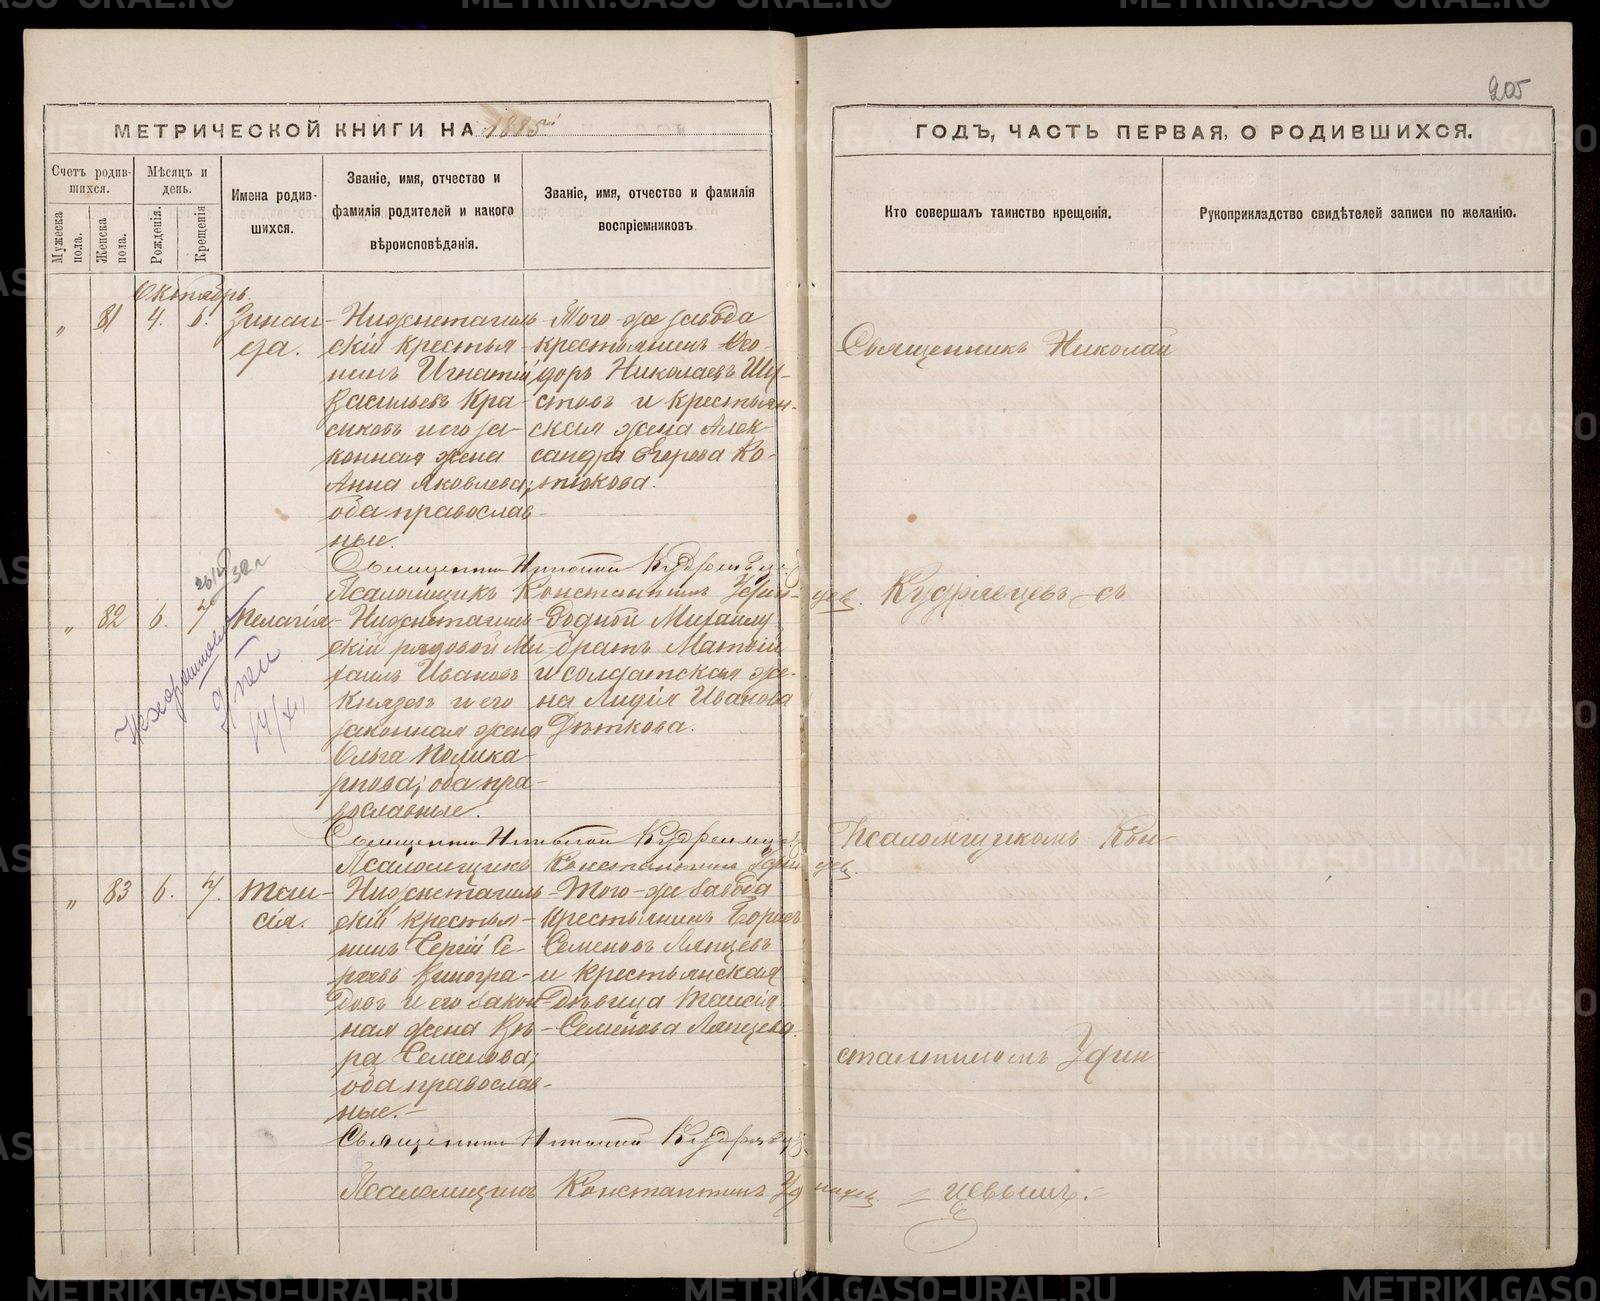 205
МЕТРИЧЕСКОЙ КНИГИ НА 1885й
ГОДЪ, ЧАСТЬ ПЕРВАЯ, О РОДИВШИХСЯ.
Счетъ родив-
шихся.
Мужеска пола.
Женска пола.
Мѣсяцъ и день.
Рожденія.
Крещенія
Имена родив-
шихся.
Званіе, имя, отчество и
фамилія родителей и какого
вѣроисповѣданія.
Званіе, имя, отчество и фамилія
воспріемниковъ
Кто совершалъ таинство крещенія.
Рукоприкладство свидѣтелей записи по желанію.
Октябрь.
„ 81 4. 6. Зинаи-
да.
Нижнетагиль-
скій крестья-
нинъ Игнатій
Васильевъ Кра-
сиковъ и его за-
конная жена
Анна Яковлева;
оба православ-
ные.
Того-же завода
крестьянинъ Ѳео-
доръ Николаевъ Шу-
стовъ и крестьян-
ская жена Алек-
сандра Егорова Ко-
тюкова.
Священникъ Николай Кудрявцевъ
Псаломщикъ Константинъ Удинцев.
„ 82 6. 7 Пелагія
Нижнетагиль-
скій рядовой Ми-
хаилъ Ивановъ
Князевъ и его
законная жена
Ольга Полика-
рпова; оба пра-
вославные.
Родной Михаилу
братъ Матвій
и солдатская же-
на Лидія Иванова
Дюткова.
14/XI
Священникъ Николай Кудрявцевъ
Псаломщикъ Константинъ Удинцев.
„ 83 6. 7. Таи-
сія.
Нижнетагиль-
скій крестья-
нинъ Сергій Се-
ргѣевъ Виногра-
довъ и его закон-
ная жена Вѣ-
ра Семенова;
оба православ-
ные.
Того-же завода
крестьянинъ Борисъ
Семеновъ Ляпцевъ
и крестьянская
дѣвица Таисія
Семенова Ляпцева.
Священникъ Николай Кудрявцевъ
Псаломщикъ Константинъ Удинцев.
Священникъ Николай
Кудрявцевъ съ
Псаломщикомъ Кон-
стантиномъ Удин-
цевымъ.
METRIKI.GASO-URAL.RU